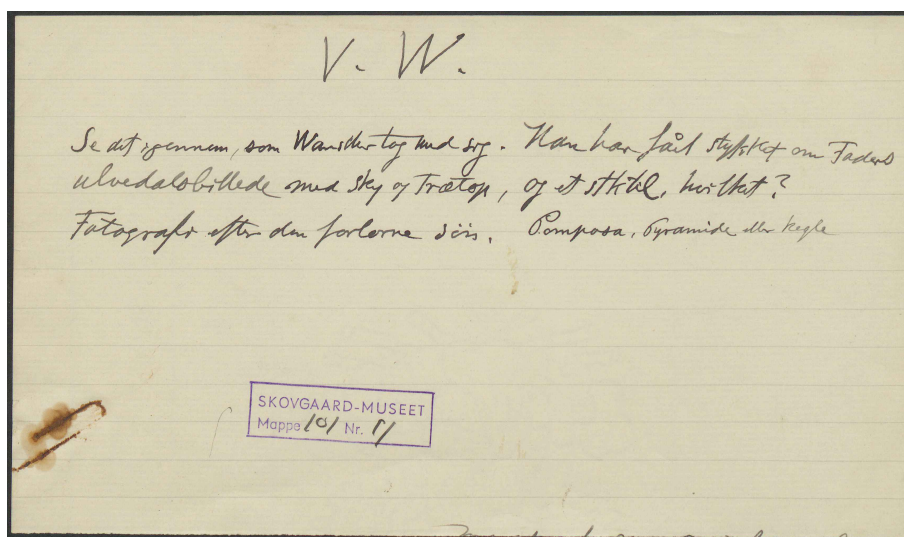 V. W.
Se det igennem, som Wanscher tog med sig. Han har fået stykket om Faders
ulvedalsbillede med sky og Trætop, og et stk til, hvilket?
Fotografi efter den forlorne Søn. Pomposa, Pyramide eller Kegle
SKOVGAARD-MUSEET
Mappe 101 Nr.